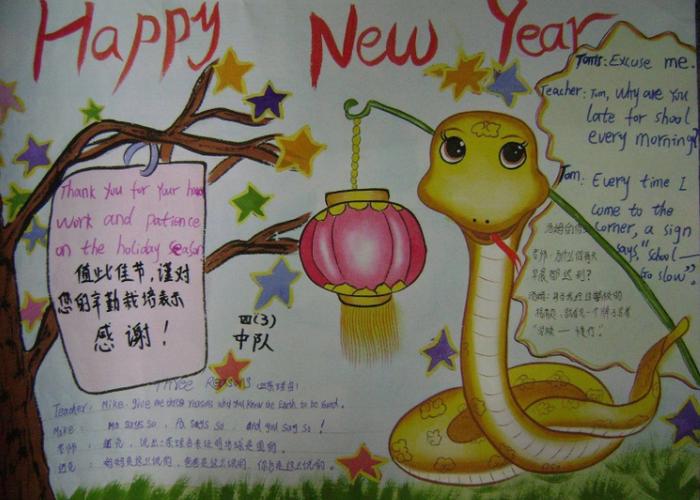 Happy New Year
Thank you for your hard
work and patience
on the holiday season
值此佳节,谨对
您的辛勤栽培表示
感谢!
四(3)
中队
Tom: Excuse me.
Teacher: Tom, Why are you
late for shool
every morning
Tom: Every time I
come to the
corner, a sign
says, "School —
Go slow."
老师:为什么你每天
早晨都迟到?
Three Reasons
Teacher: Mike, give me three reasons why you know the Earth to be round.
Mike: Ma says so, Pa says so, and you say so!
老师:
迈克:妈妈是这么说的,爸爸是这么说的,你也是这么说的。